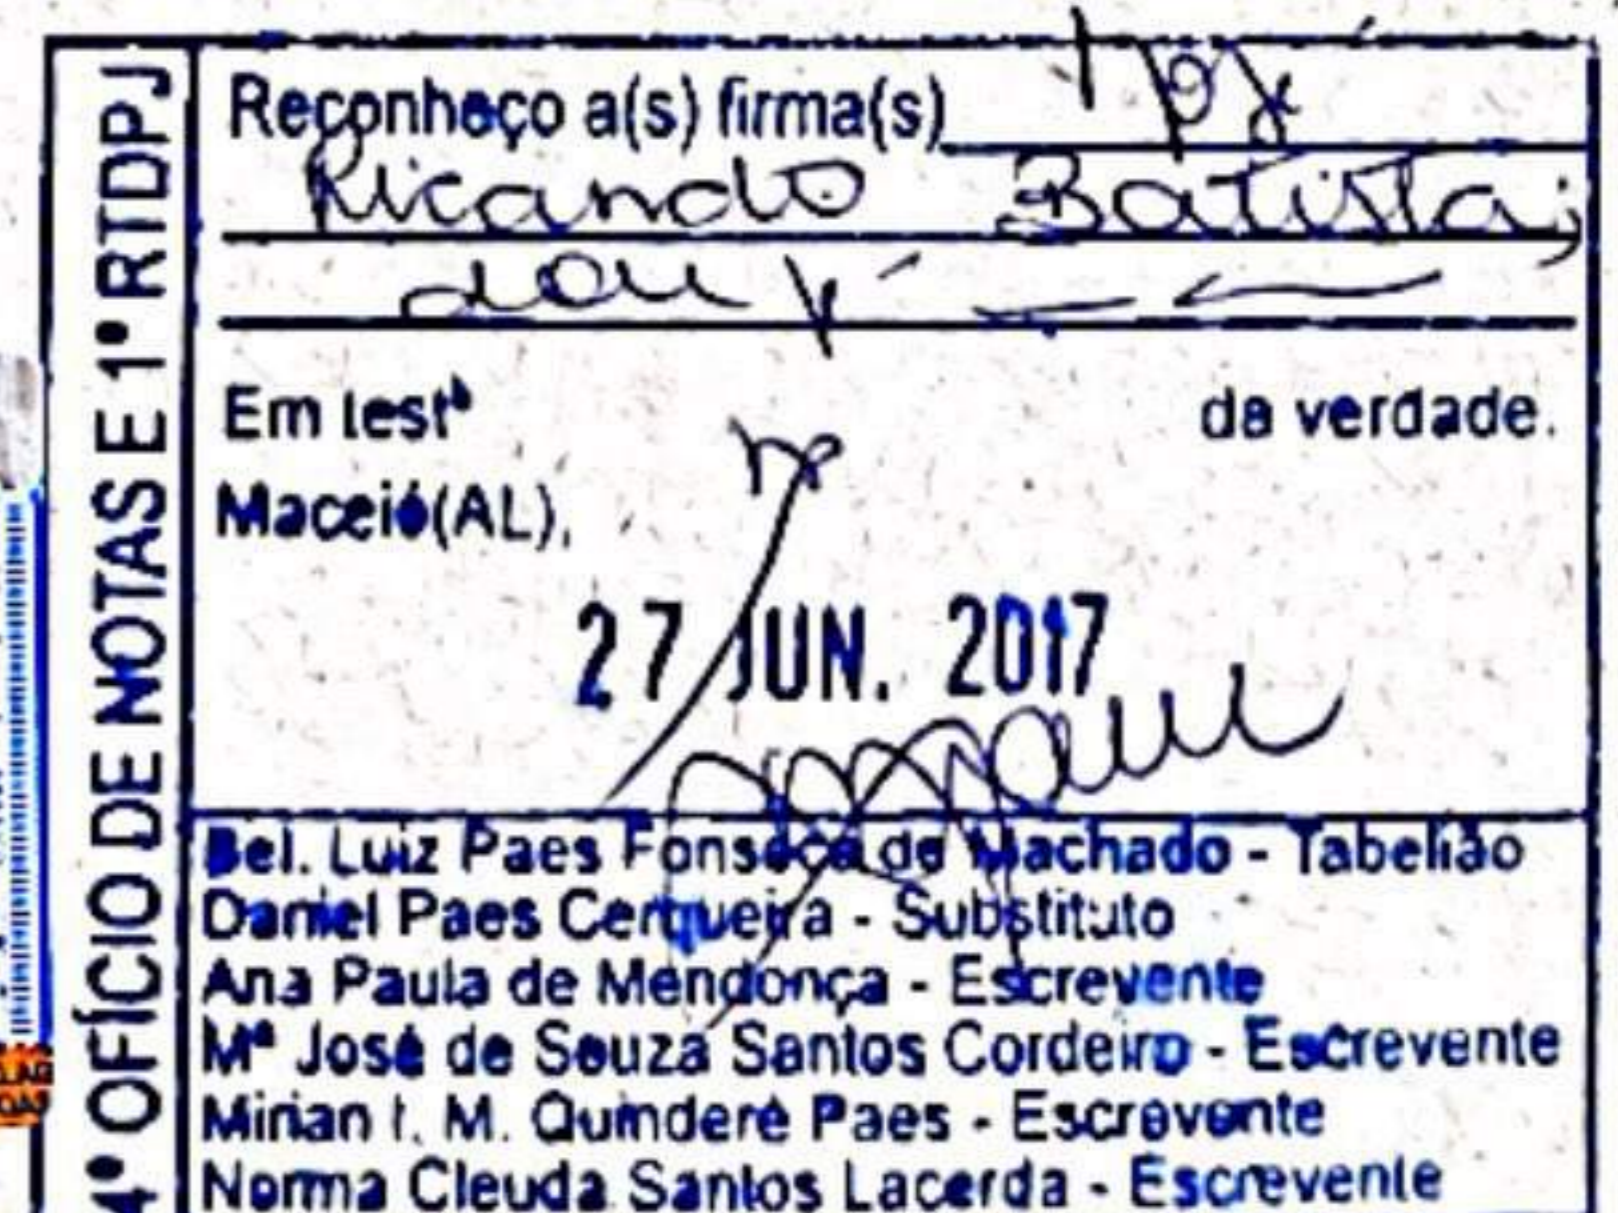 4º OFÍCIO DE NOTAS E 1º RTDPJ
Reconheço a(s) firma(s) por
Ricardo Batista;
dou fé
Em testº da verdade.
Maceió(AL),
27 JUN. 2017
Bel. Luiz Paes Fonseca de Machado - Tabelião
Daniel Paes Cerqueira - Substituto
Ana Paula de Mendonça - Escrevente
Mª José de Souza Santos Cordeiro - Escrevente
Mirian I. M. Quinderé Paes - Escrevente
Norma Cleuda Santos Lacerda - Escrevente